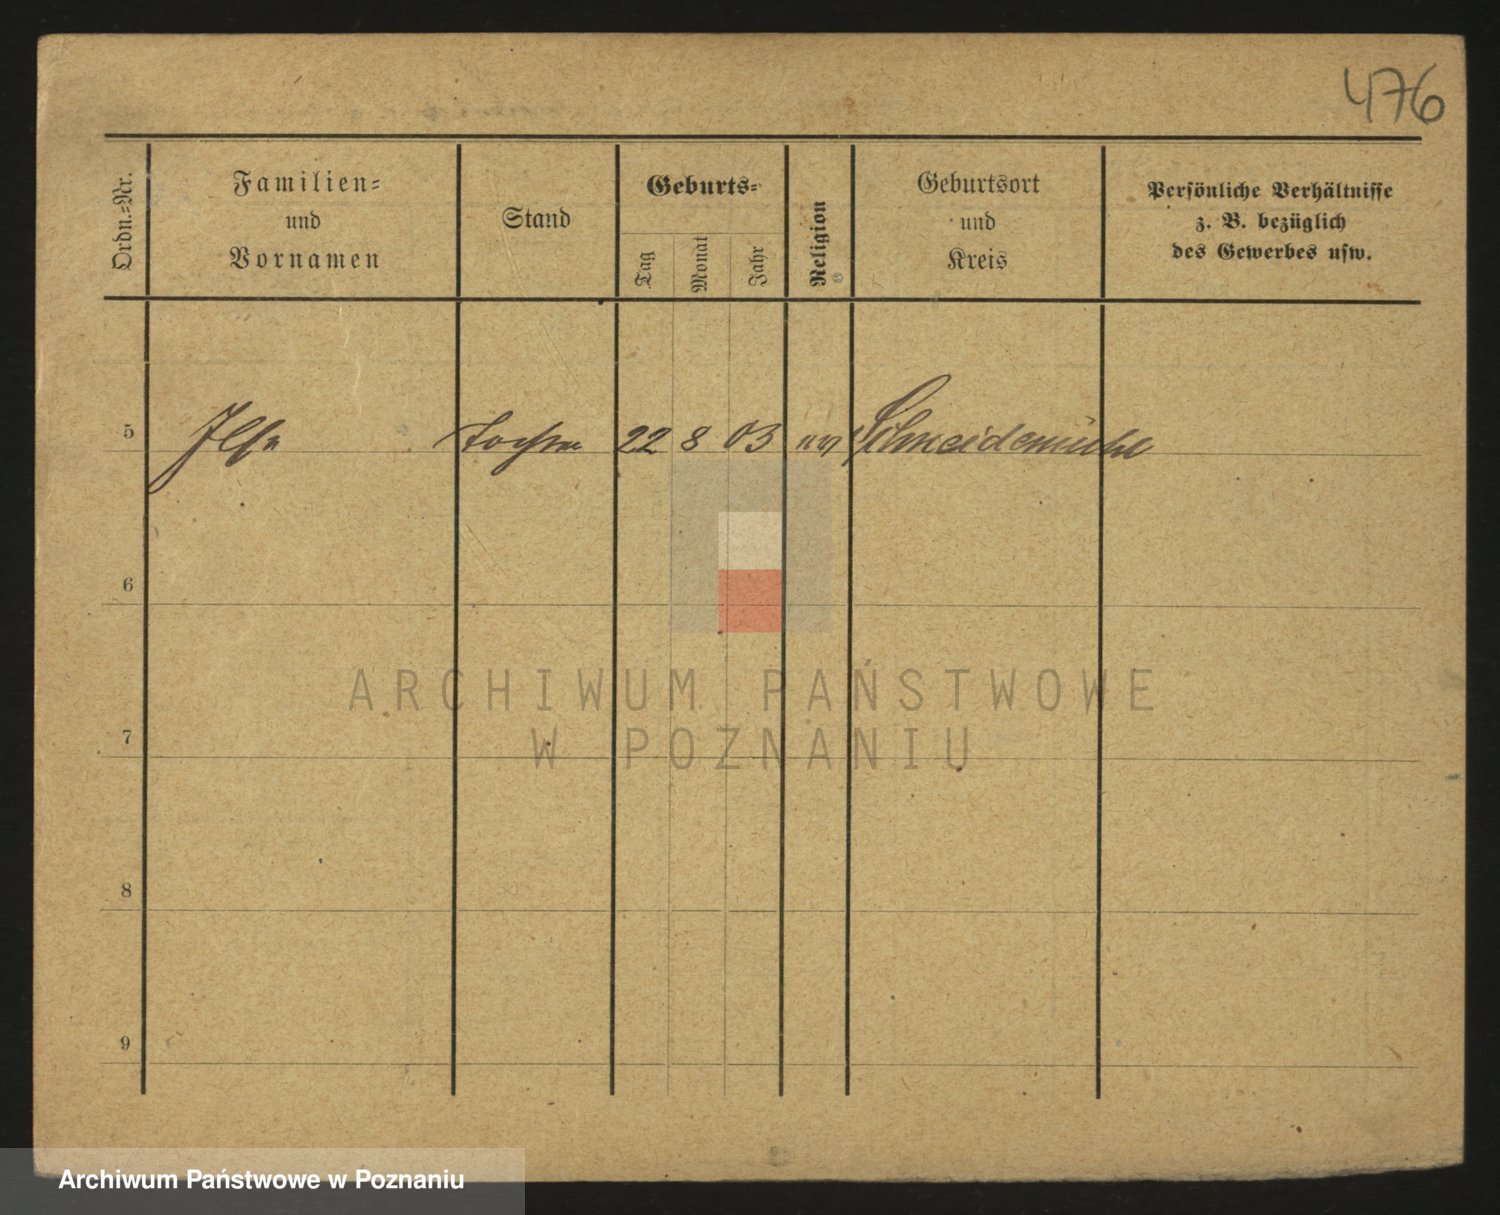 476
Ordn.-Nr.
Familien-
und
Vornamen
Stand
Geburts-
Tag
Monat
Jahr
Religion
Geburtsort
und
Kreis
Persönliche Verhältnisse
z. B. bezüglich
des Gewerbes usw.
5 Ilse Tochter 22 8 03 Schneidemühl
6
7
8
9
ARCHIWUM PAŃSTWOWE
W POZNANIU
Archiwum Państwowe w Poznaniu